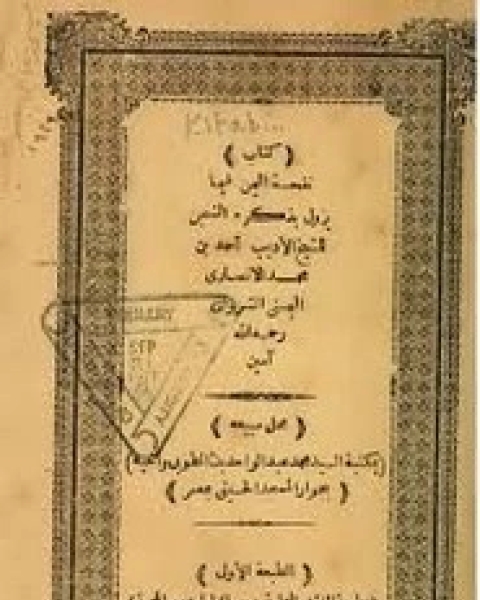 Kitab
( كتاب )
نفحة اليمن فيما
يزول بذكره الشجن
للشيخ الأديب أحمد بن
محمد الانصارى
اليمنى الشروانى
رحمه الله
آمين
( محل مبيعه )
( بمكتبة السيد محمد عبد الواحد بك الطوبى وأخيه )
( بجوار المسجد الحسينى بمصر )
( الطبعة الأولى )